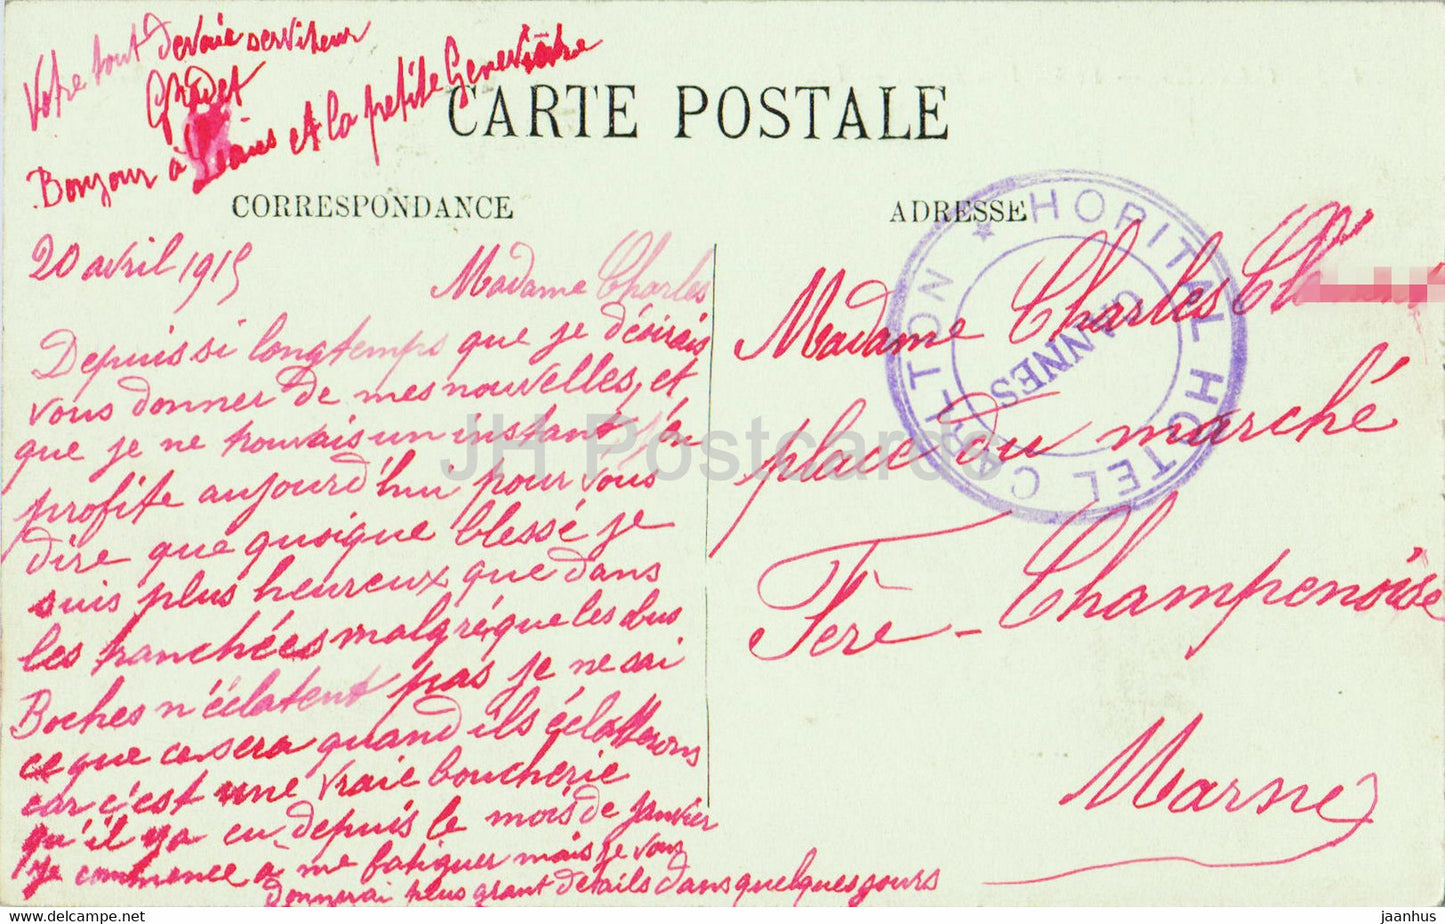 Votre tout dévoué serviteur
Bonjour à et A la petite Geneviève
CARTE POSTALE
CORRESPONDANCE
ADRESSE
20 avril 1915
Madame Charles
Depuis si longtemps que je désirais
vous donner de mes nouvelles, et
que je ne trouvais un instant j'en
profite aujourd'hui pour vous
dire que quoique blessé je
suis plus heureux que dans
les tranchées malgré que les obus
Boches n'éclatent pas je ne sai
ce que ce sera quand ils éclatterons
car c'est une vraie boucherie
qu'il ya eu depuis le mois de janvier
je commence a me fatiguer mais je vous
donnerai plus grant détails dans quelques jours
Madame Charles
place du marché
Fère-Champenoise
Marne
★ HOPITAL HOTEL CARLTON
CANNES
JH Postcards
https://www.jhpostcards.com
jaanhus